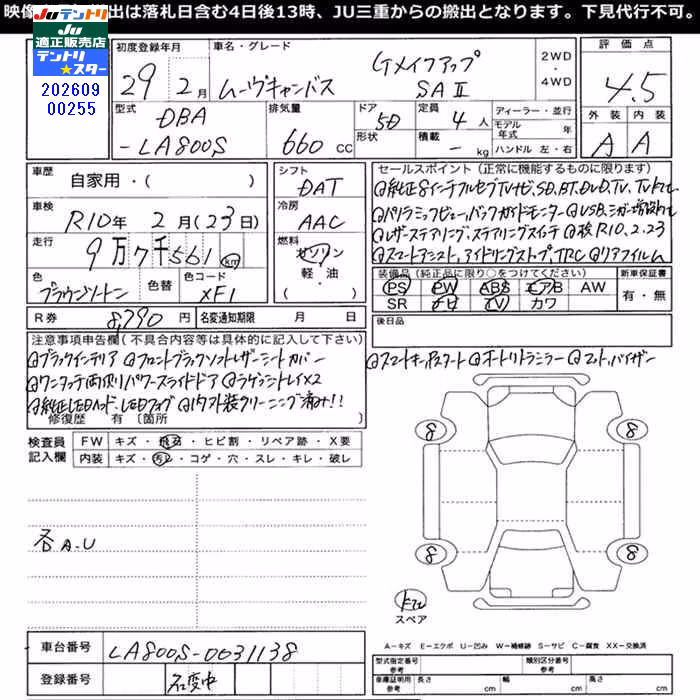 映像 出は落札日含む4日後13時、JU三重からの搬出となります。下見代行不可。
JUテントリ
JU適正販売店
テントリ★スター
202609
00255
初度登録年月
29 2月
車名・グレード
ムーヴキャンバス
Gメイクアップ
SAⅡ
2WD
・
4WD
評価点
4.5
外装 内装
A A
型式
DBA
-LA800S
排気量
660 CC
ドア
5D
形状
定員
4人
積載
- kg
ディーラー・並行
モデル年式 年
ハンドル 左・右
車歴
自家用・( )
シフト
DAT
車検
R10年 2月(23日)
冷房
AAC
走行
9万7千561 km
燃料
ガソリン
軽・油
・( )
色
ブラウンツートン
色替
色コード
XF1
R券 8,790 円
名変通知期限 月 日
セールスポイント(正常に機能するものに限ります)
◎純正8インチフルセグTVナビ、SD、BT、DVD、TV、
◎パノラミックビュー、バックガイドモニター ◎USB、
◎レザーステアリング、ステアリングスイッチ ◎検R10.2.23
◎スマートアシスト、アイドリングストップ、TRC ◎リアフィルム
装備品(純正品に限り○をつけてください)
PS PW ABS エアB AW
SR ナビ TV カワ
新車保証書
有・無
後日品
◎スマートキー、Pスタート ◎オートリトラミラー ◎マット、バイザー
注意事項申告欄(不具合内容等は具体的に記入して下さい)
◎ブラックインテリア ◎フロントブラックソフトレザーシートカバー
◎ワンタッチ両側パワースライドドア ◎ラゲッジトレイ×2
◎純正LEDヘッド、LEDフォグ ◎内外装クリーニング済み!!
修復歴 有 〔箇所
検査員
記入欄
FW キズ・飛石・ヒビ割・リペア跡・X要
内装 キズ・汚れ・コゲ・穴・スレ・キレ・破レ
各A.U
8 8
8 8
スペア
A-キズ E-エクボ U-凹み W-補修跡 S-サビ C-腐食 XX-交換済
車台番号 LA800S-0031138
登録番号 名変中
型式指定番号
参考
類別区分番号
参考
車庫証明用
参考
長さ cm 幅 cm 高さ cm